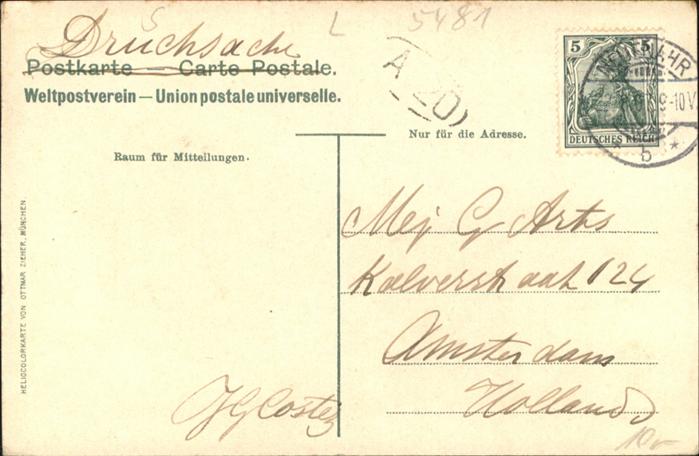 5481
L
Drucksache
Postkarte — Carte Postale.
Weltpostverein — Union postale universelle.
A 20
5 5
DEUTSCHES REICH
9-10V
b *
Nur für die Adresse.
Raum für Mitteilungen.
Mej G Arts
Kalverstraat 124
Amsterdam
Holland
HELIOCOLORKARTE VON OTTMAR ZIEHER, MÜNCHEN.